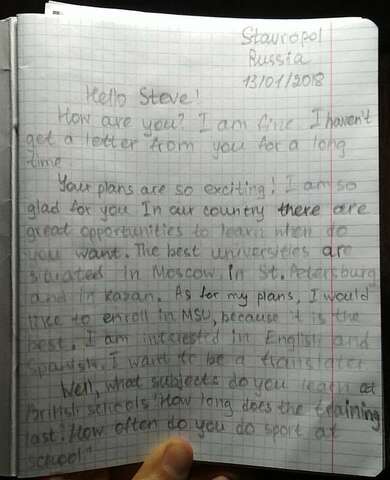 Stavropol
Russia
13/01/2018
Hello Steve!
How are you? I am fine. I haven't
get a letter from you for a long
time.
Your plans are so exciting! I am so
glad for you In our country there are
great opportunities to learn when do
you want. The best universities are
situated in Moscow, in St. Petersburg
and in Kazan. As for my plans, I would
like to enroll in MSU, because it is the
best. I am interested in English and
Spanish. I want to be a translater
Well, what subjects do you learn at
British schools? How long does the training
last? How often do you do sport at
school?